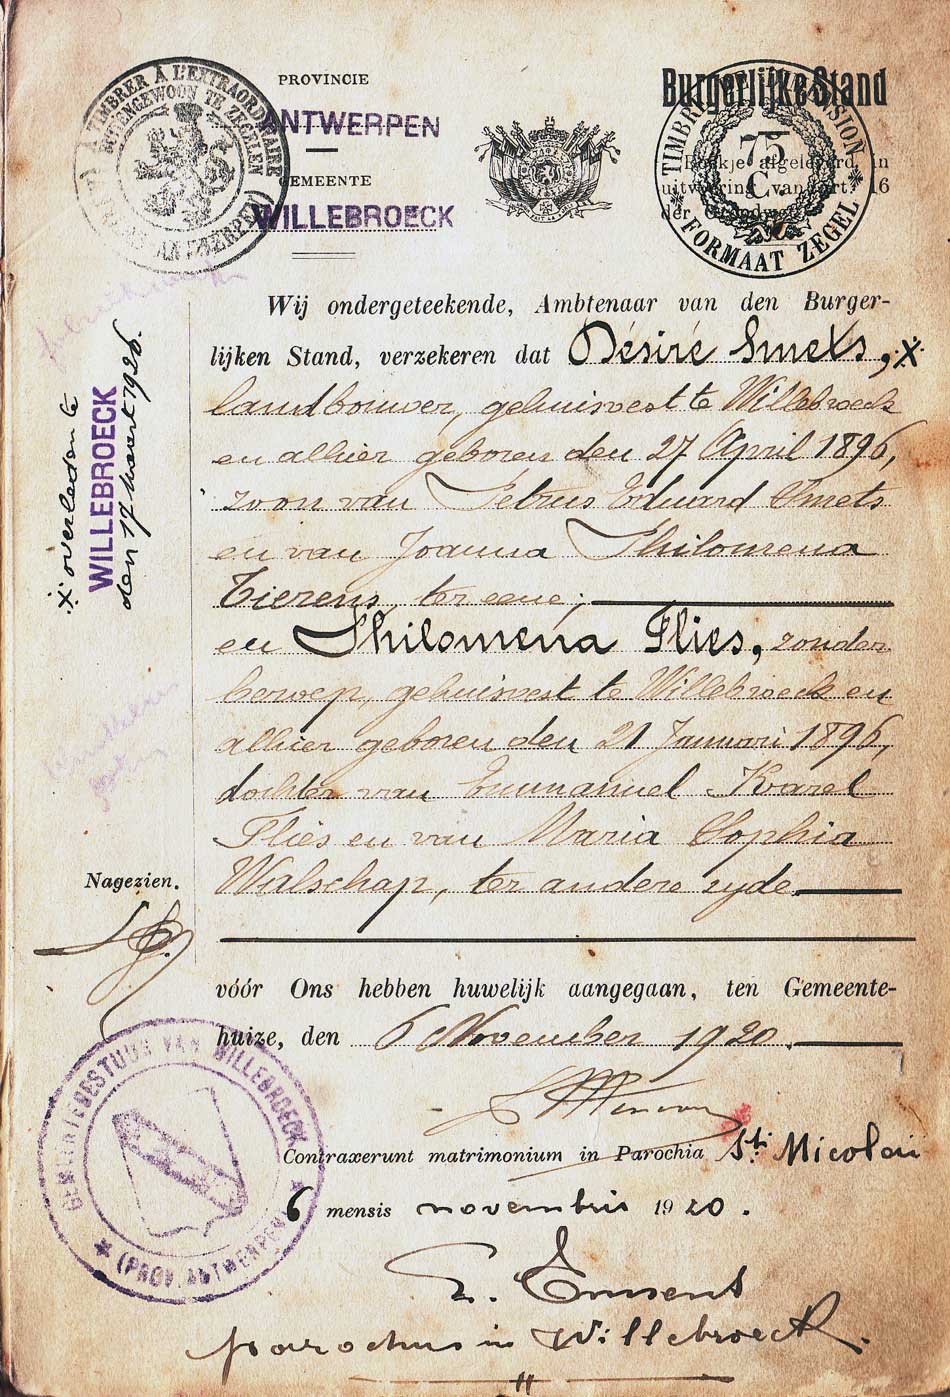 PROVINCIE
ANTWERPEN
GEMEENTE
WILLEBROECK
TIMBRER A L'EXTRAORDINAIRE
BUITENGEWOON TE ZEGELEN
Burgerlijke Stand
TIMBRE DIMENSION
75
C
FORMAAT ZEGEL
Boekje afgeleverd in
uitvoering van art. 16
der Grondwet
Wij ondergeteekende, Ambtenaar van den Burger-
lijken Stand, verzekeren dat Désiré Smets, x
landbouwer, gehuisvest te Willebroeck
en alhier geboren den 27 April 1896,
zoon van Petrus Eduard Smets
en van Joanna Philomena
Tierens, ter eene;
en Philomena Flies, zonder
beroep, gehuisvest te Willebroeck en
alhier geboren den 21 Januari 1896,
dochter van Emmanuel Karel
Flies en van Maria Sophia
Walschap, ter andere zyde
x overleden te
WILLEBROECK
den 17 Maart 1926.
Nagezien.
vóór Ons hebben huwelijk aangegaan, ten Gemeente-
huize, den 6 November 1920.
GEMEENTEBESTUUR VAN WILLEBROECK
(PROV. ANTWERPEN)
Contraxerunt matrimonium in Parochia Sti Nicolai
6 mensis novembris 1920.
Emsens
parochus in Willebroeck.